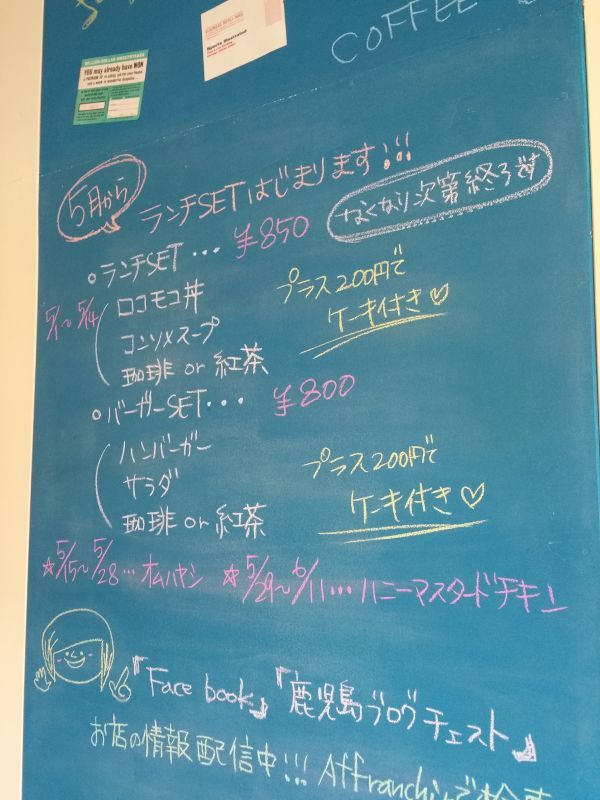 COFFEE
MILLION-DOLLAR SWEEPSTAKES
YOU may already have WON
Sports Illustrated
5月から
ランチSETはじまります!!!
なくなり次第終了です
・ランチSET・・・ ¥850
5/1〜5/14
ロコモコ丼
コンソメスープ
珈琲 or 紅茶
プラス200円で
ケーキ付き♡
・バーガーSET・・・ ¥800
ハンバーガー
サラダ
珈琲 or 紅茶
プラス200円で
ケーキ付き♡
☆5/15〜5/28…オムハヤシ ☆5/29〜6/11…ハニーマスタードチキン
『Face book』『鹿児島ブログチェスト』
お店の情報配信中!!! Affranchiで検索